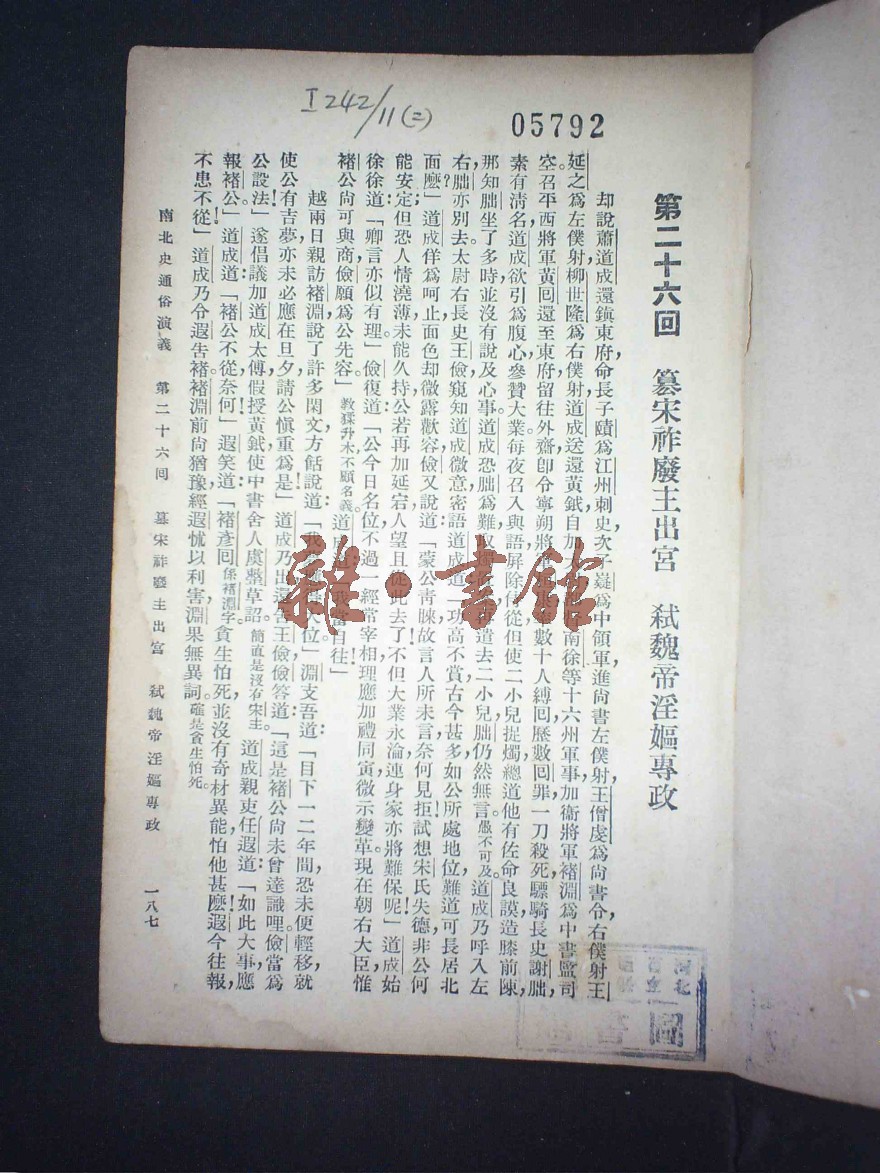 I242/11(二)
05792
第二十六回 篡宋祚廢主出宮 弒魏帝淫嫗專政
却說蕭道成還鎮東府，命長子賾爲江州刺史，次子嶷爲中領軍，進尚書左僕射王僧虔爲尚書令，右僕射王
延之爲左僕射，柳世隆爲右僕射，道成送還黃鉞，自加太 南徐等十六州軍事，加衞將軍褚淵爲中書監司
空。召平西將軍黃回還至東府，留住外齋，卽令寧朔將軍 數十人縛回，歷數回罪，一刀殺死。驃騎長史謝朏，
素有清名，道成欲引爲腹心，參贊大業，每夜召入與語，屏除侍從，但使二小兒捉燭，總道他有佐命良謨，造膝前陳，
那知朏坐了多時，並沒有說及心事。道成恐朏爲難，取燭 遣去二小兒，朏仍然無言，愚不可及。道成乃呼入左
右，朏亦別去。太尉右長史王儉窺知道成微意，密語道成道：「功高不賞，古今甚多，如公所處地位，難道可長居北
面麽？」道成佯爲呵止，面色却微露歡容。儉又說道：「蒙公青睞，故言人所未言，奈何見拒？試想宋氏失德，非公何
能安定？但恐人情澆薄，未能久持，公若再加延宕，人望且從此去了，不但大業永淪，連身家亦將難保呢！」道成始
徐徐道：「卿言亦似有理。」儉復道：「公今日名位，不過一經常宰相，理應加禮同寅，微示變革，現在朝右大臣，惟
褚公尚可與商，儉願爲公先容。」教猱升木，不顧名義。道成道：「我當自往！」
越兩日，親訪褚淵，說了許多閑文，方餂說道：「我 大位。」淵支吾道：「目下一二年間，恐未便輕移，就
使公有吉夢，亦未必應在旦夕，請公愼重爲是！」道成乃出，還告王儉，儉答道：「這是褚公尚未曾達識哩。儉當爲
公設法！」遂倡議加道成太傅，假授黃鉞，使中書舍人虞整草詔。簡直是沒有宋主。道成親吏任遐道：「如此大事，應
報褚公。」道成道：「褚公不從奈何！」遐笑道：「褚彥回係褚淵字貪生怕死，並沒有奇材異能，怕他甚麽？遐今往報，
不患不從！」道成乃令遐告褚，褚淵前尚猶豫，經遐怵以利害，淵果無異詞。確是貪生怕死。
南北史通俗演義 第二十六回 篡宋祚廢主出宮 弒魏帝淫嫗專政 一八七
雜·書館